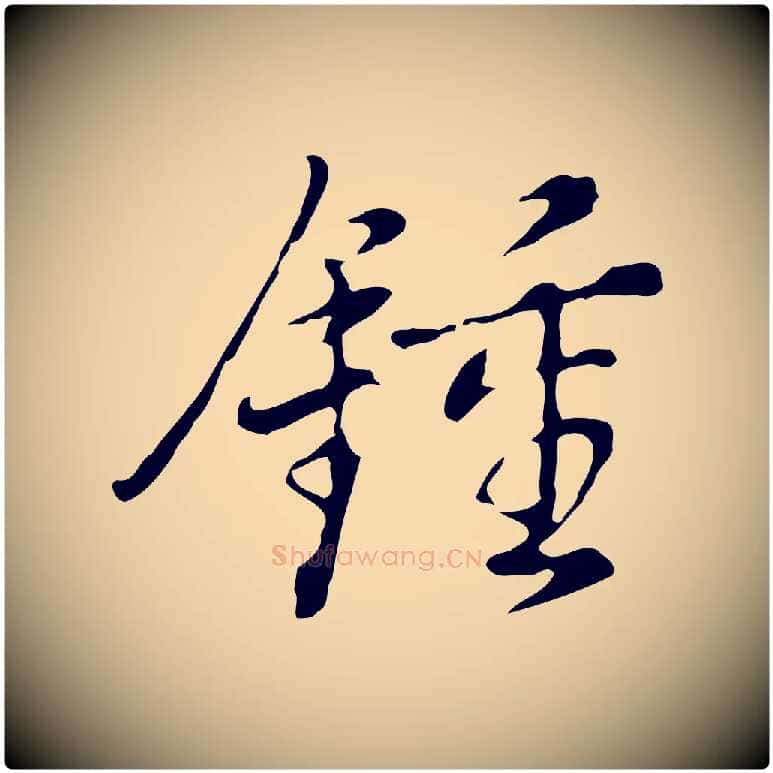 鍾
Shufawang.CN